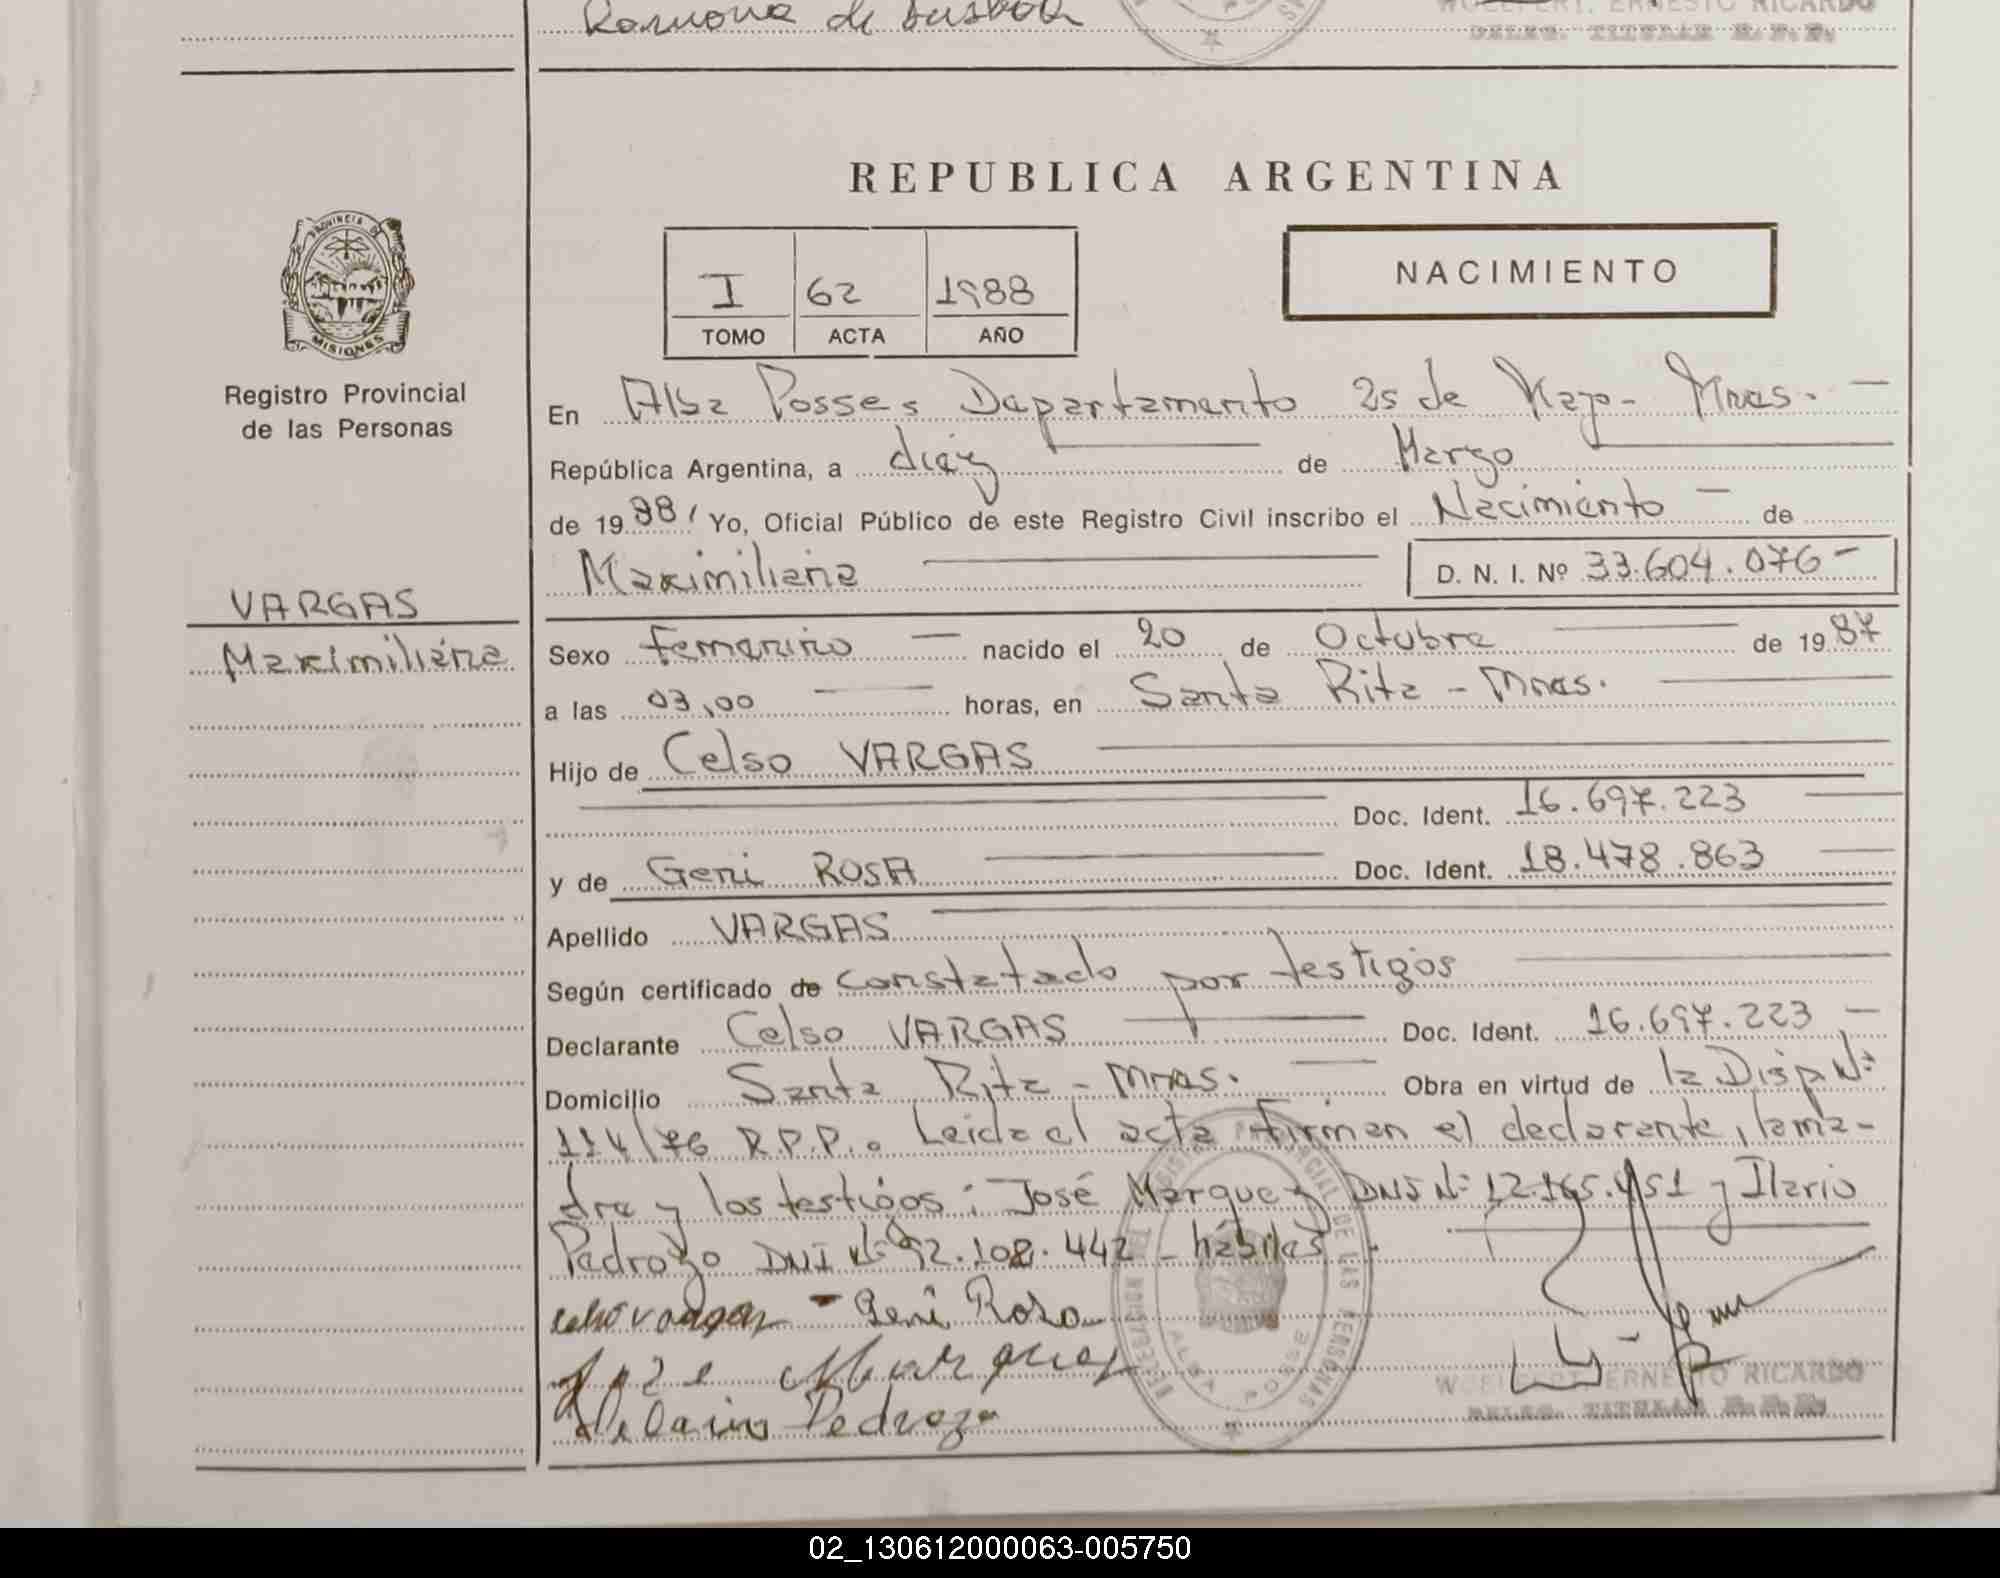 Ramona de
WOELFERT, ERNESTO RICARDO
DELEG. TITULAR R.P.P.
REPUBLICA ARGENTINA
PROVINCIA DE
MISIONES
Registro Provincial
de las Personas
I 62 1988
TOMO ACTA AÑO
NACIMIENTO
En Alba Posse, Departamento 25 de Mayo - Mnes. -
República Argentina, a diez de Marzo
de 1988, Yo, Oficial Público de este Registro Civil inscribo el Nacimiento - de
Maximiliana D. N. I. Nº 33.604.076-
VARGAS
Maximiliana
Sexo femenino - nacido el 20 de Octubre de 1987
a las 03,00 horas, en Santa Rita - Mnes.
Hijo de Celso VARGAS
Doc. Ident. 16.697.223
y de Geni ROSA Doc. Ident. 18.478.863
Apellido VARGAS
Según certificado de constatado por testigos
Declarante Celso VARGAS Doc. Ident. 16.697.223 -
Domicilio Santa Rita - Mnes. Obra en virtud de la Disp Nº
114/76 R.P.P. Leida el acta firman el declarante, la ma-
dre y los testigos: José Marquez DNI Nº 12.165.451 y Ilario
Pedrozo DNI Nº 92.108.442 - hábiles.
celso vargas - Geni Rosa
Jose Marques
Pedrozo
REGISTRO PROVINCIAL DE LAS PERSONAS
ALBA POSSE
WOELFERT, ERNESTO RICARDO
DELEG. TITULAR R.P.P.
02_130612000063-005750